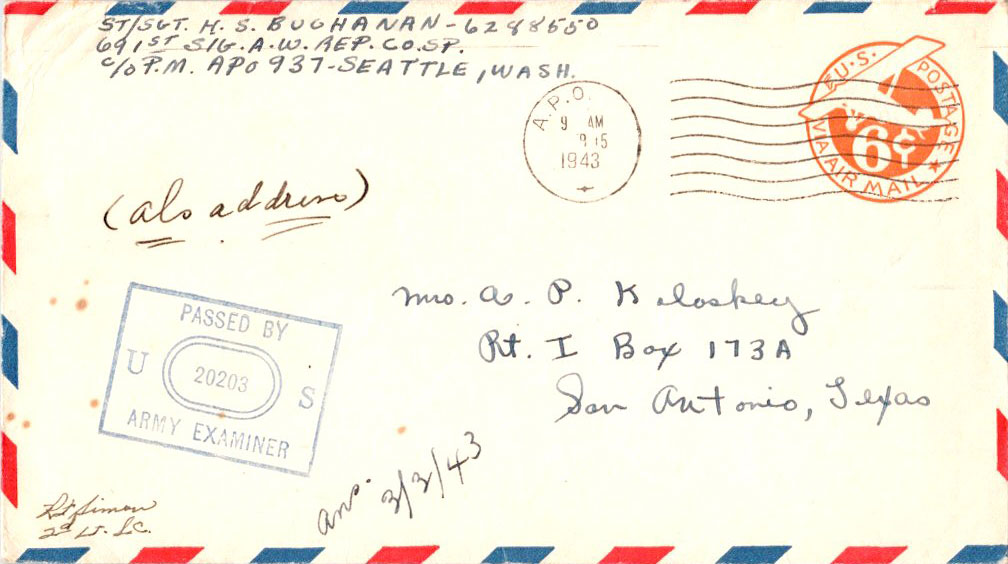 ST/SGT. H. S. BUCHANAN - 6288550
691ST SIG. A. W. REP. CO. SP.
C/O P.M. APO 937 - SEATTLE, WASH.
A.P.O.
9 AM
15
1943
U.S. POSTAGE
6¢
VIA AIR MAIL
(als address)
Mrs. A. P. Keloskey
Rt. I Box 173A
San Antonio, Texas
PASSED BY
U 20203 S
ARMY EXAMINER
ans. 3/3/43
Simon
2d Lt. S.C.